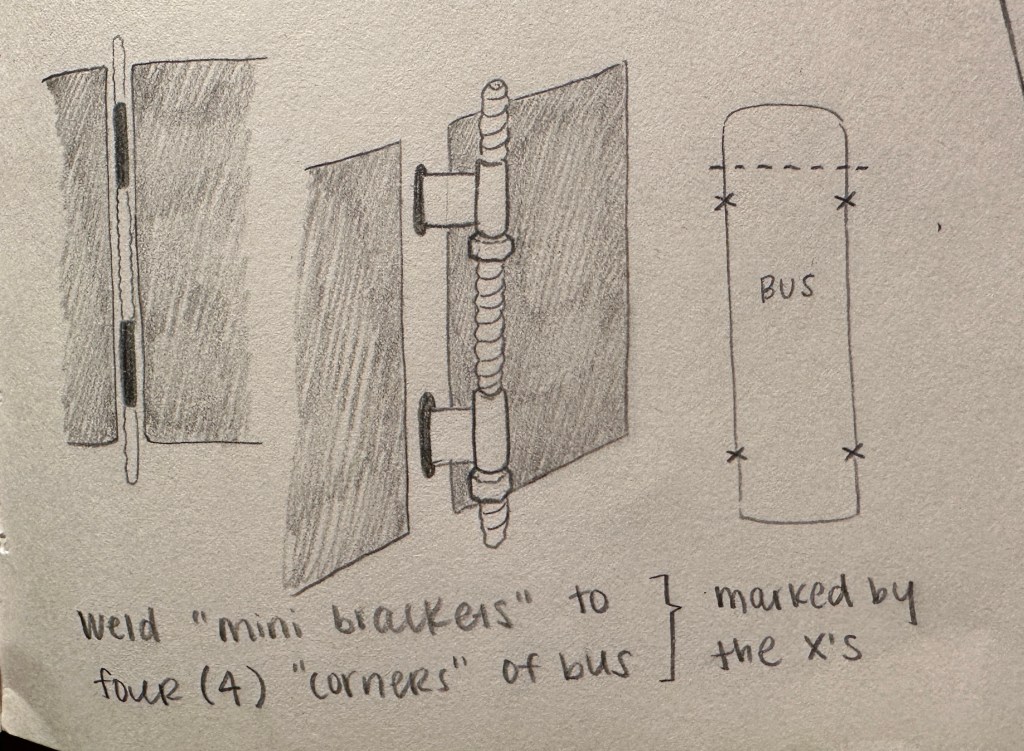 BUS
weld "mini brackers" to
four (4) "corners" of bus
marked by
the x's